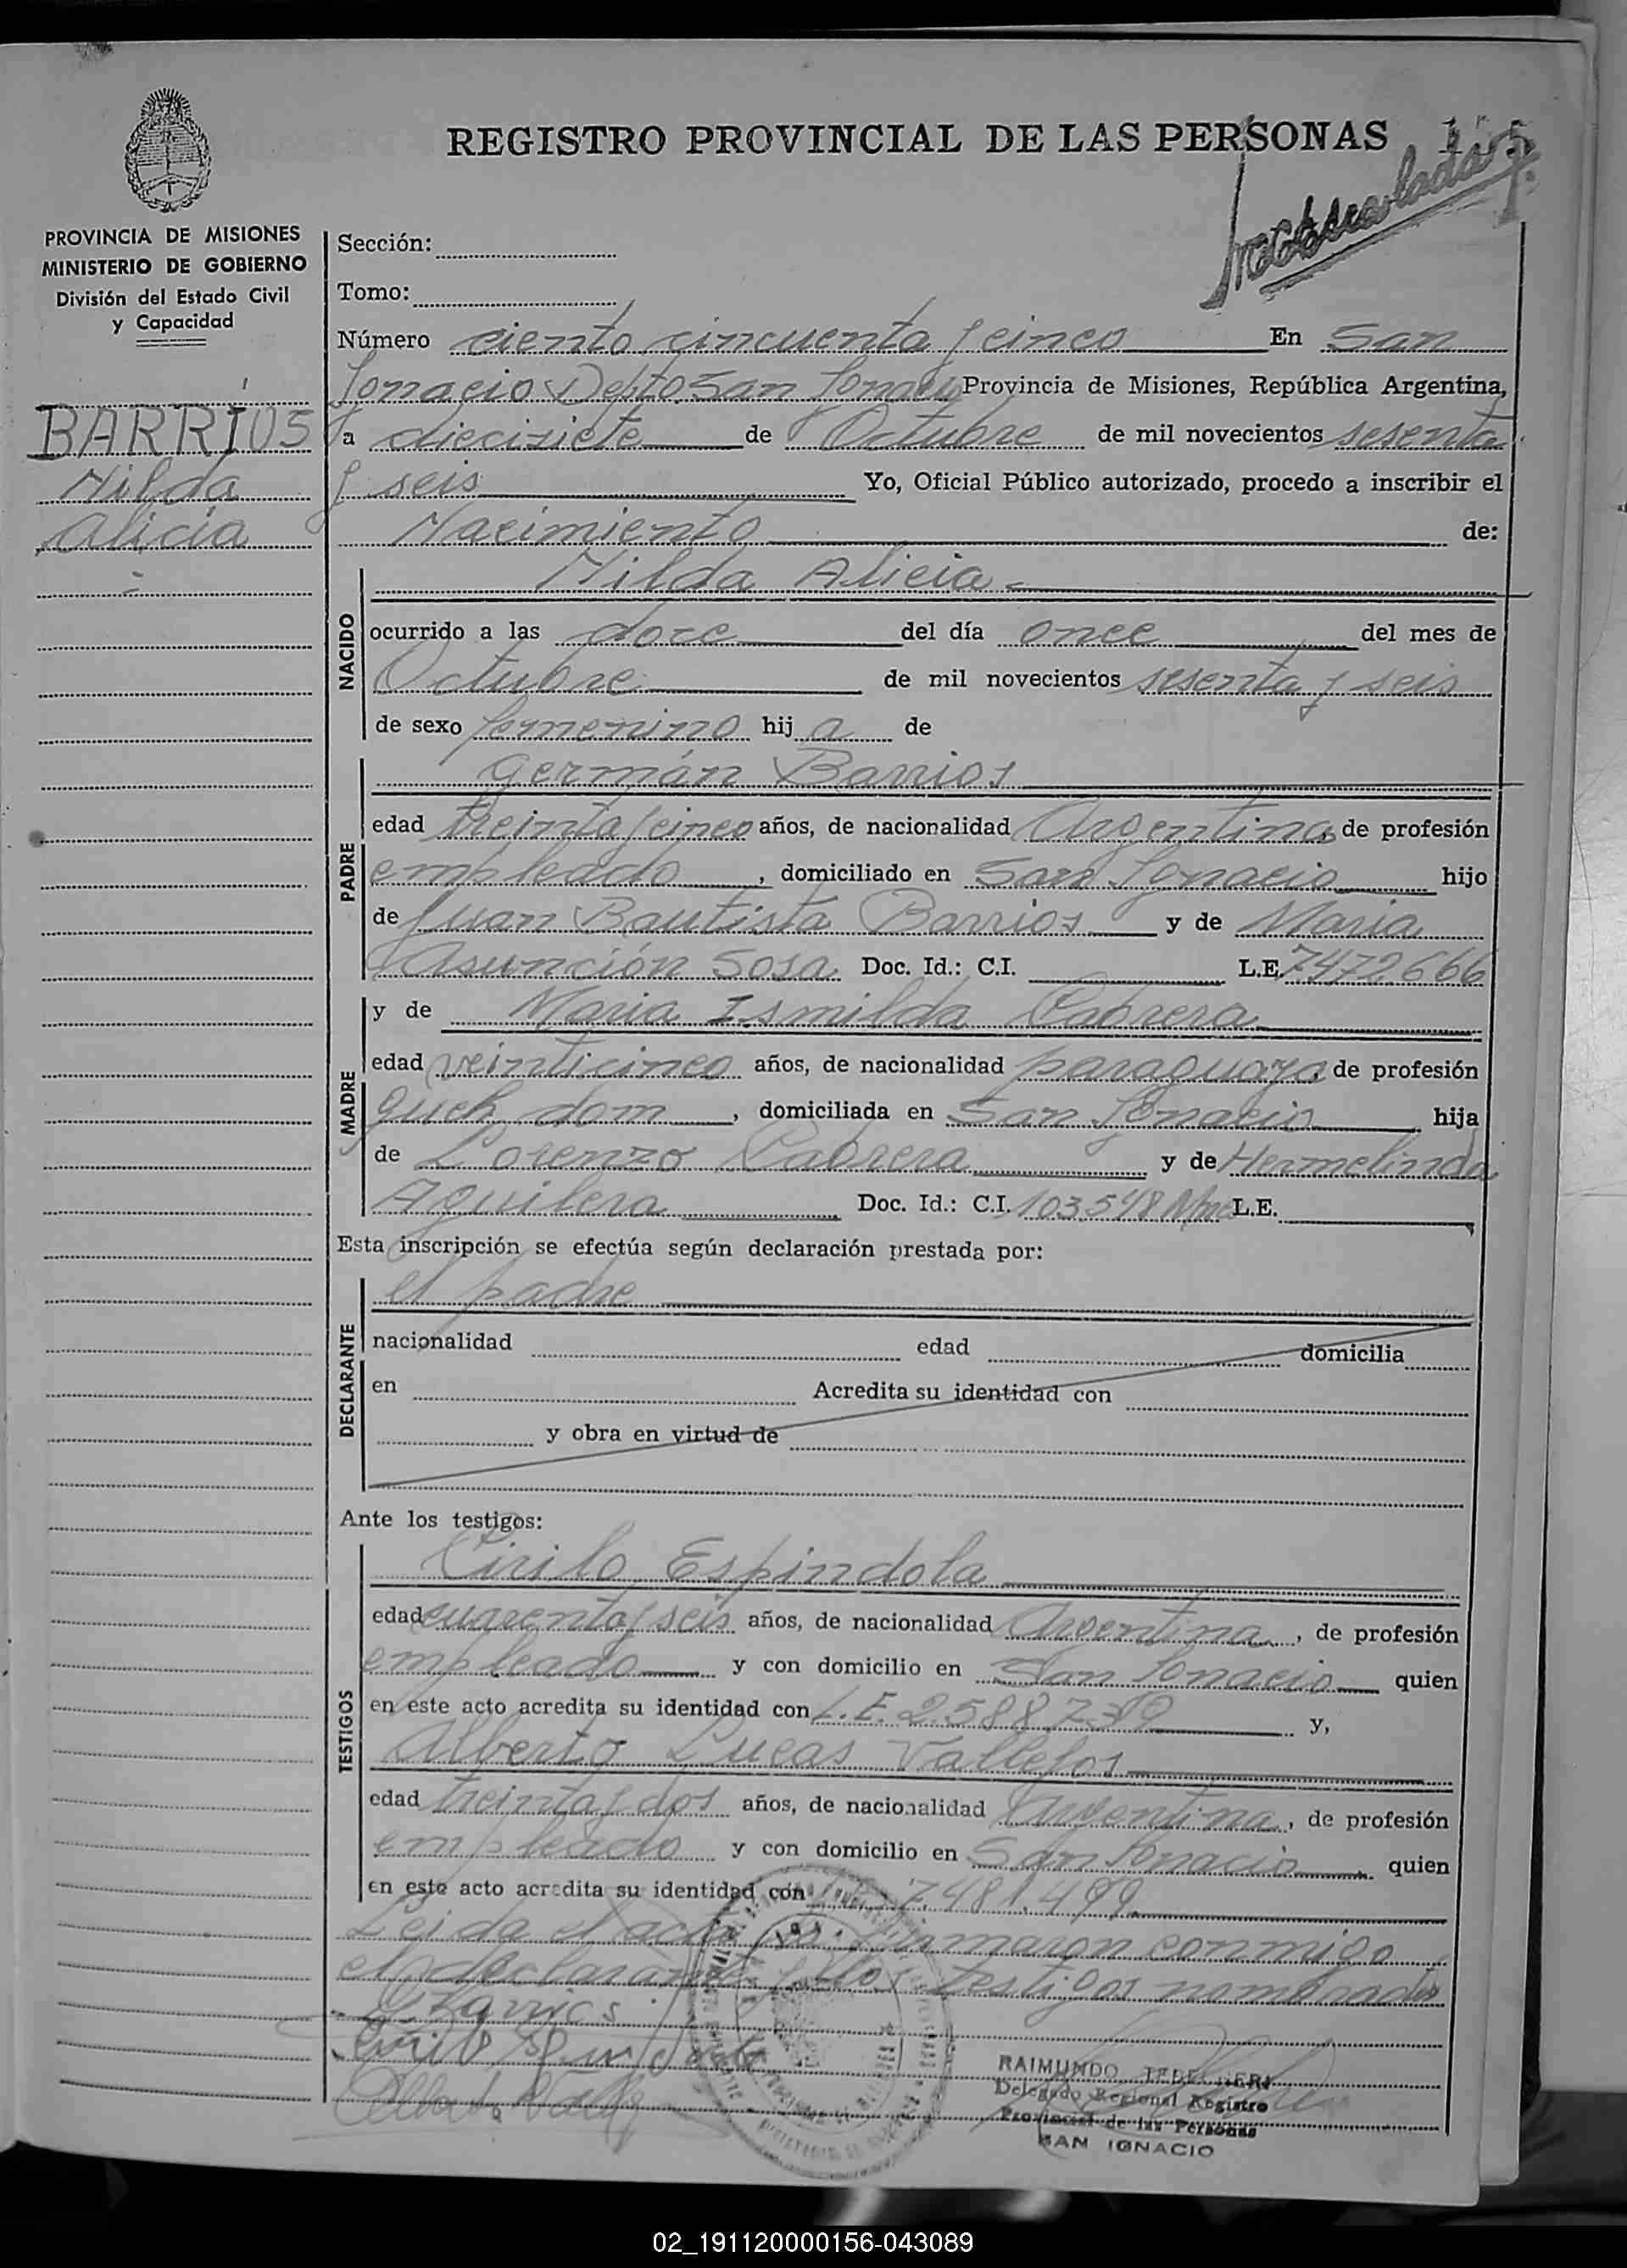 REGISTRO PROVINCIAL DE LAS PERSONAS
PROVINCIA DE MISIONES
MINISTERIO DE GOBIERNO
División del Estado Civil
y Capacidad
BARRIOS
Nilda
Alicia
Sección:
Tomo:
Número ciento cincuenta y cinco En San
Ignacio Depto San Ignacio Provincia de Misiones, República Argentina,
a diecisiete de Octubre de mil novecientos sesenta
y seis Yo, Oficial Público autorizado, procedo a inscribir el
Nacimiento de:
NACIDO
Nilda Alicia
ocurrido a las doce del día once del mes de
Octubre de mil novecientos sesenta y seis
de sexo femenino hija de
PADRE
Germán Barrios
edad treinta y cinco años, de nacionalidad Argentina, de profesión
empleado, domiciliado en San Ignacio hijo
de Juan Bautista Barrios y de Maria
Asunción Sosa Doc. Id.: C.I. L.E. 7472666
MADRE
y de Maria Ismilda Cabrera
edad veinticinco años, de nacionalidad paraguaya, de profesión
queh. dom, domiciliada en San Ignacio hija
de Lorenzo Cabrera y de Hermelinda
Aguilera Doc. Id.: C.I. 103.548 Mnes L.E.
Esta inscripción se efectúa según declaración prestada por:
DECLARANTE
el padre
nacionalidad edad domicilia
en Acredita su identidad con
y obra en virtud de
Ante los testigos:
TESTIGOS
Cirilo Espindola
edad cuarenta y seis años, de nacionalidad Argentina, de profesión
empleado y con domicilio en San Ignacio quien
en este acto acredita su identidad con L.E. 2588739 y,
Alberto Lucas Vallejos
edad treinta y dos años, de nacionalidad Argentina, de profesión
empleado y con domicilio en San Ignacio quien
en este acto acredita su identidad con 7.481.499
Leida el acta firmaron conmigo
el declarante y los testigos nombrados
Barrios
RAIMUNDO
Delegado Regional Registro
Provincial de las Personas
SAN IGNACIO
02_191120000156-043089